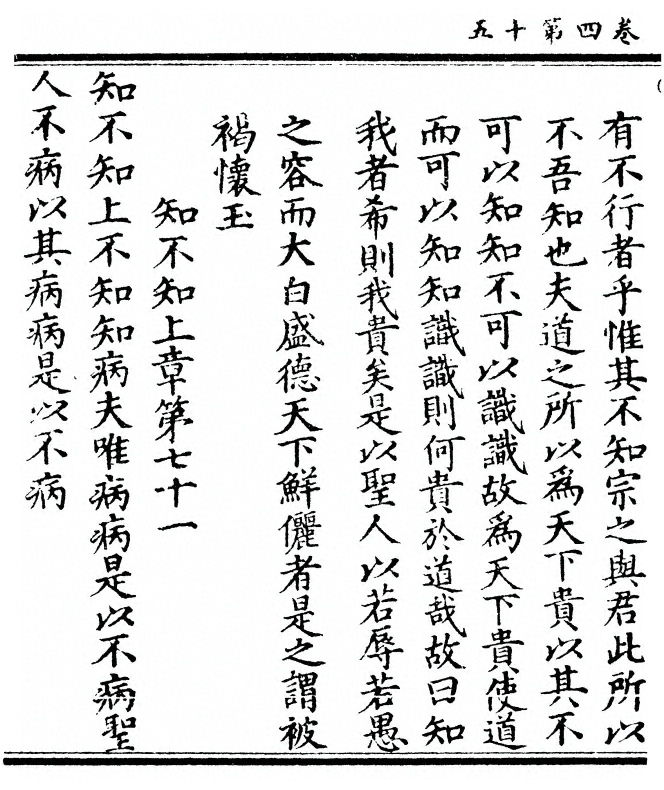 卷四第十五
有不行者乎惟其不知宗之與君此所以
不吾知也夫道之所以為天下貴以其不
可以知知不可以識識故為天下貴使道
而可以知知識識則何貴於道哉故曰知
我者希則我貴矣是以聖人以若辱若愚
之容而大白盛德天下鮮儷者是之謂被
褐懷玉
知不知上章第七十一
知不知上不知知病夫唯病病是以不病聖
人不病以其病病是以不病